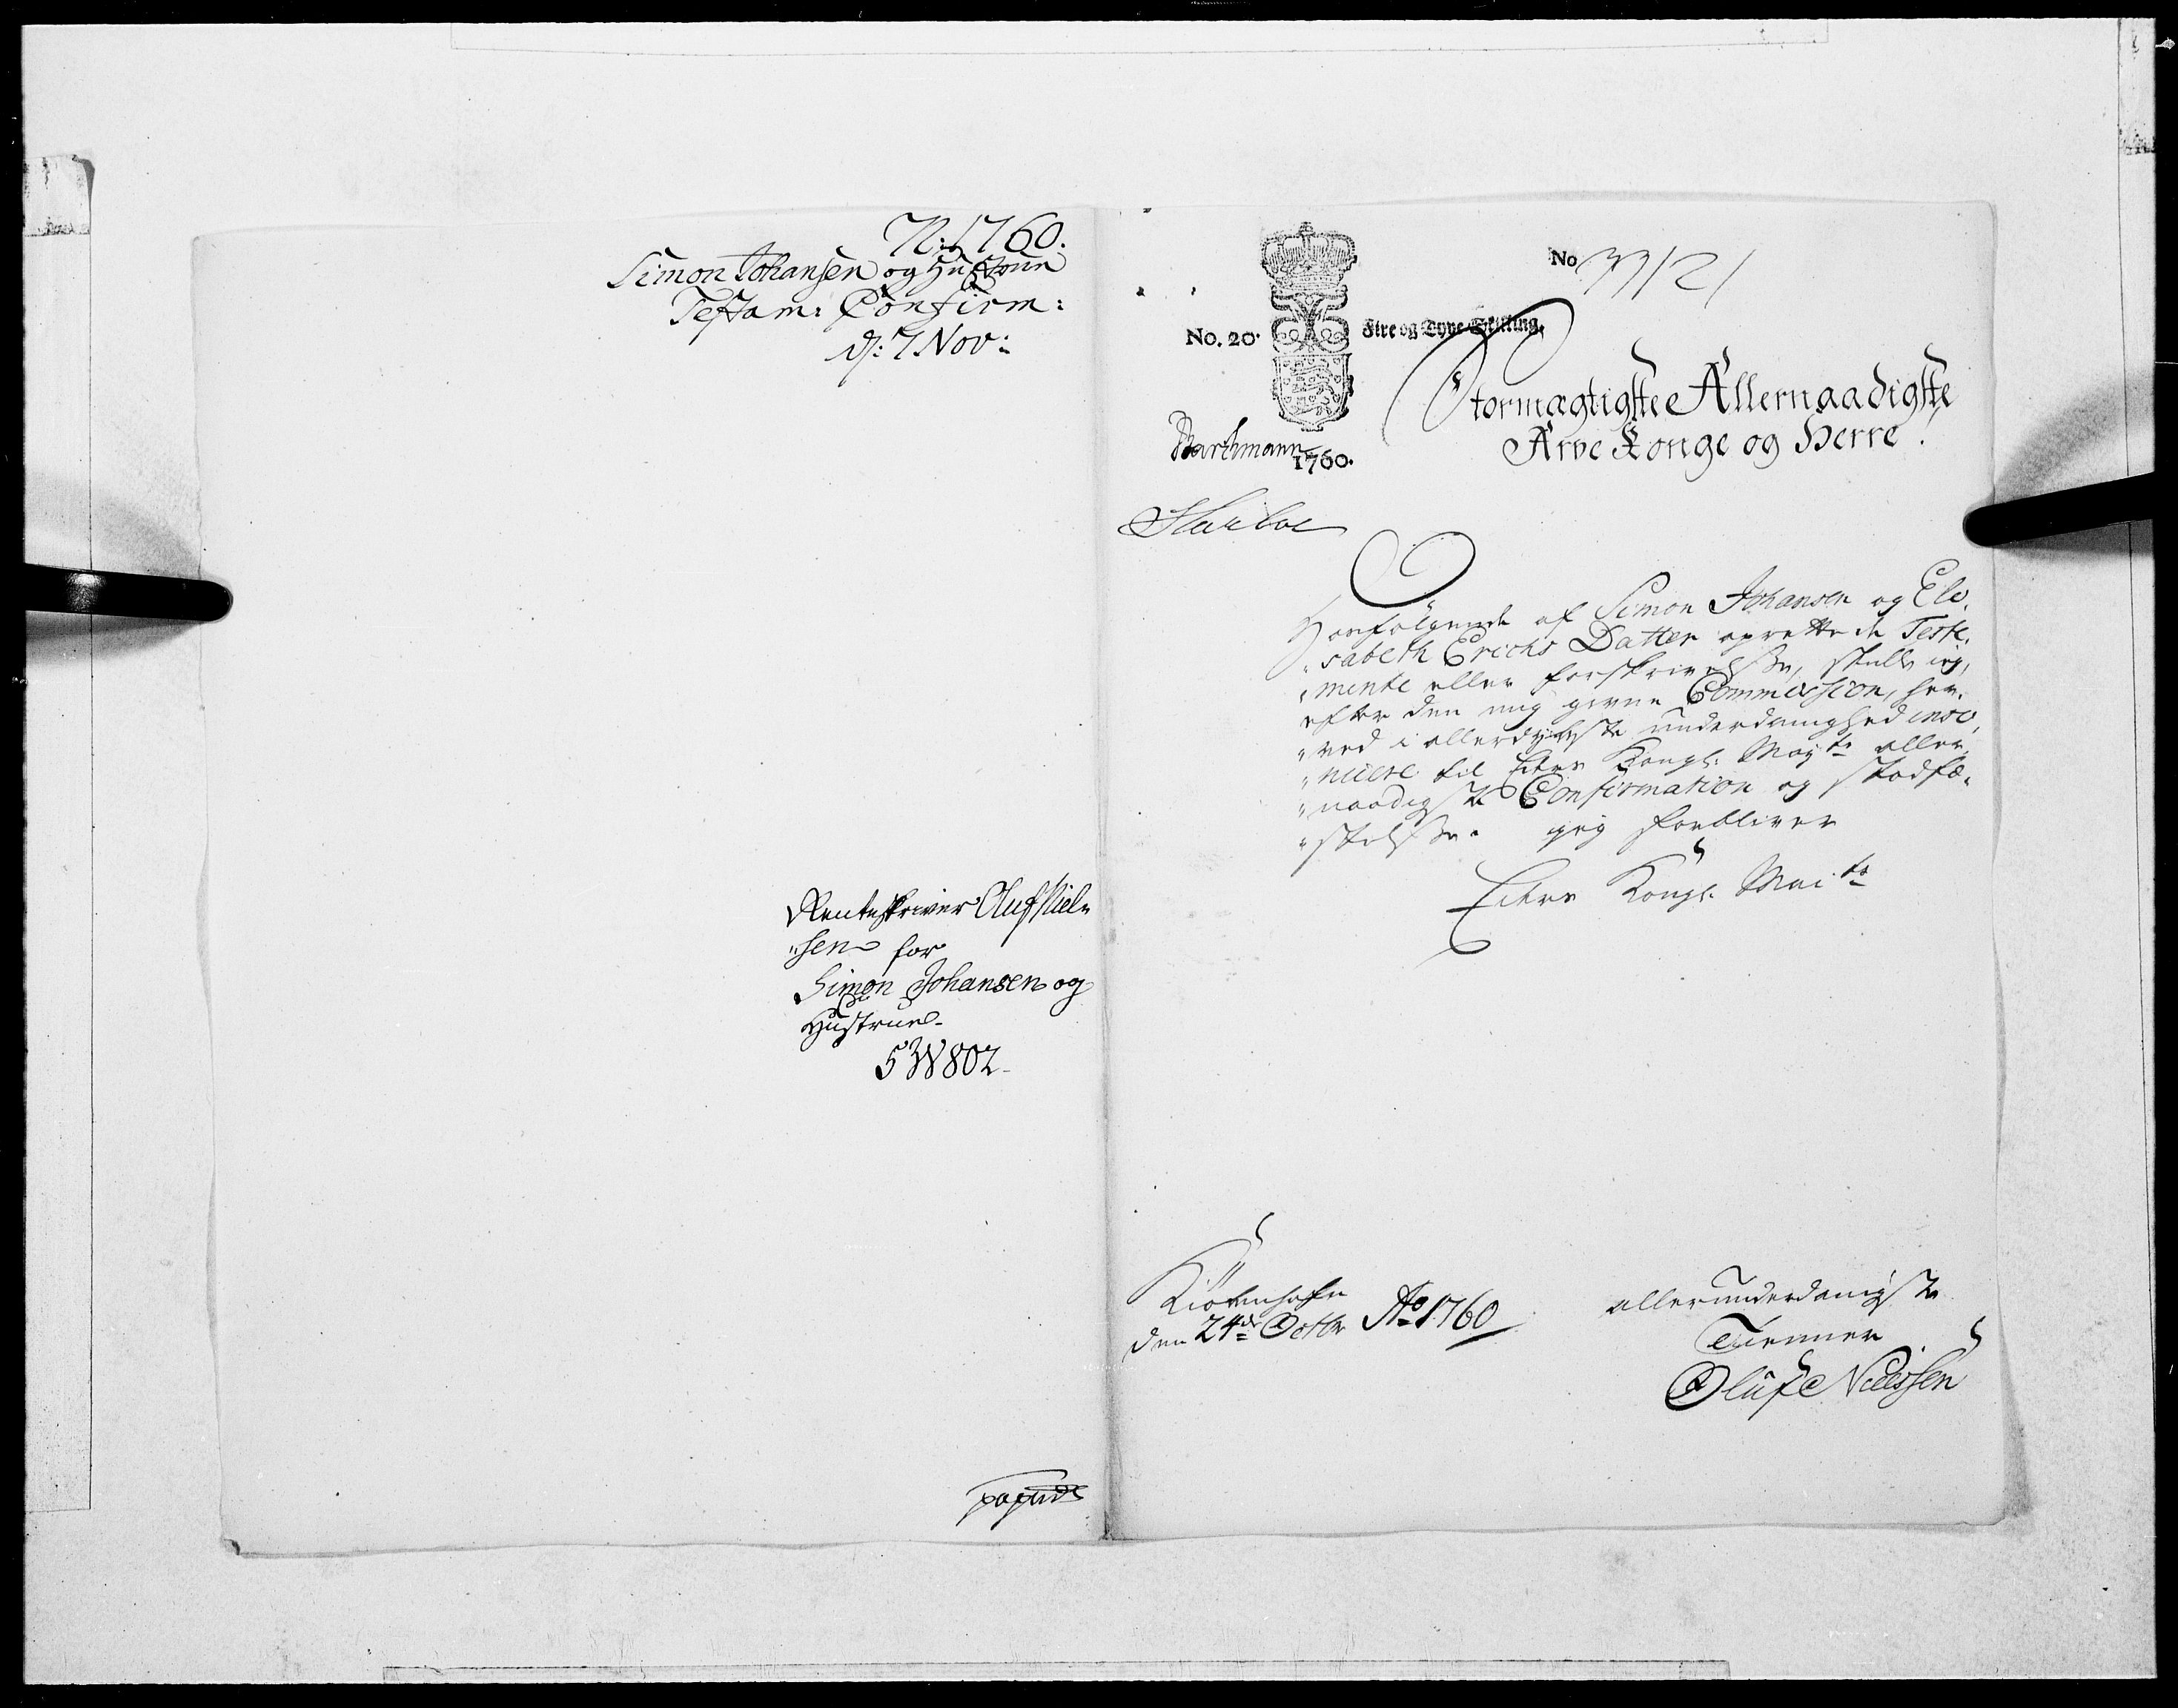 N: 1760.
Simon Johansen og Hustrue
Testam: Confirm:
d: 7 Nov:
Renteskriver Oluf Niel„
„sen for
Simon Johansen og
Hustrue
5 W 802
No
No. 20.
Fire og Tyve Skilling,
Stormægtigste Allernaadigste
Arve Konge og Herre!
Barthmann
1760.
Hosfølgende af Simon Johansen og Eli„
„sabeth Erichs Datter oprettede Teste„
„mente eller forskrivelsse, skulle ieg,
efter den mig givne Commission, her„
„ved i allerdybeste underdanighed insi„
„nuere til Eders Kongl: Mayts aller„
„naadigste Confirmation og Stadfæ„
„stelsse. jeg forbliver
Eders Kongl: Maits
Kiøbenhafn
den 24de Octbr Ao 1760
allerunderdanigste
Tienner
Oluf Nielssen